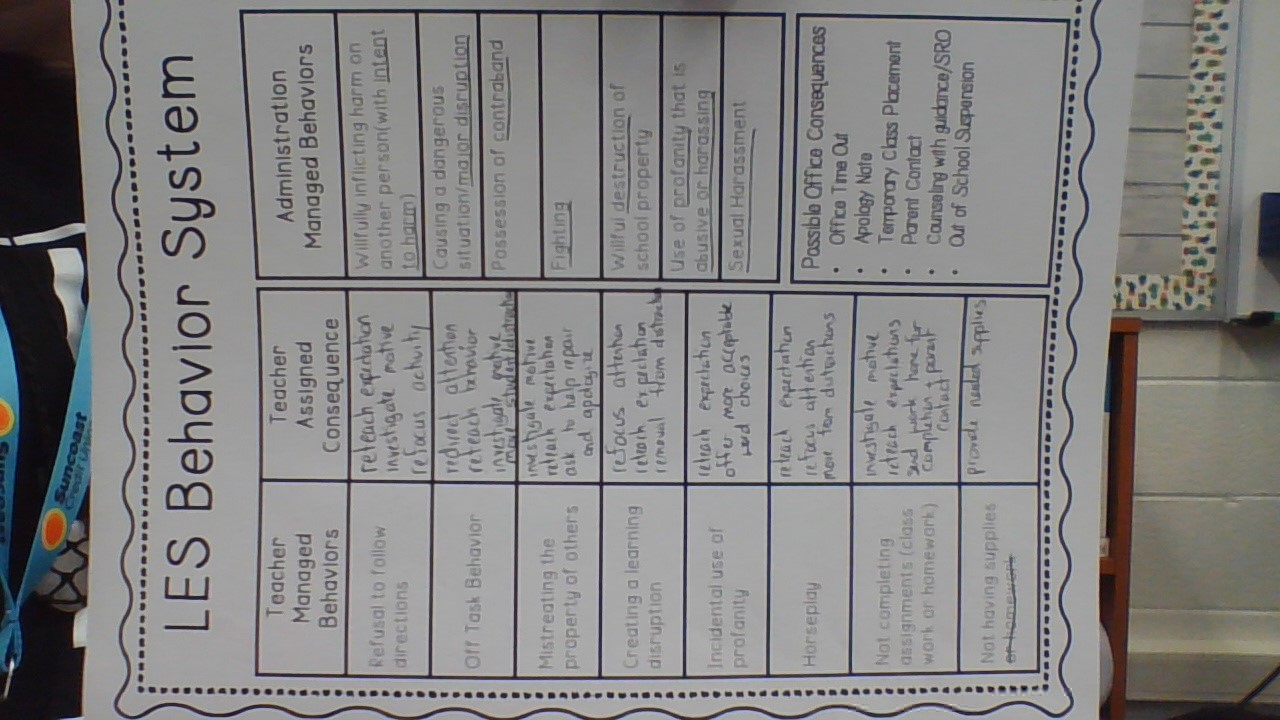 LES Behavior System
Teacher
Managed
Behaviors
Teacher
Assigned
Consequence
Refusal to follow
directions
reteach expectation
investigate motive
refocus activity
Off Task Behavior
redirect attention
reteach behavior
investigate motive
move student
Mistreating the
property of others
investigate motive
reteach expectation
ask to help repair
and apologize
Creating a learning
disruption
refocus attention
reteach expectation
removal from
Incidental use of
profanity
reteach expectation
offer more acceptable
word choices
Horseplay
reteach expectation
refocus attention
move from distractions
Not completing
assignments (class
work or homework)
investigate motive
reteach expectations
send work home for
completion + parent
contact
Not having supplies
or homework
provide needed supplies
Administration
Managed Behaviors
Willfully inflicting harm on
another person(with intent
to harm)
Causing a dangerous
situation/major disruption
Possession of contraband
Fighting
Willful destruction of
school property
Use of profanity that is
abusive or harassing
Sexual Harassment
Possible Office Consequences
• Office Time Out
• Apology Note
• Temporary Class Placement
• Parent Contact
• Counseling with guidance/SRO
• Out of School Suspension
Suncoast
Credit Union